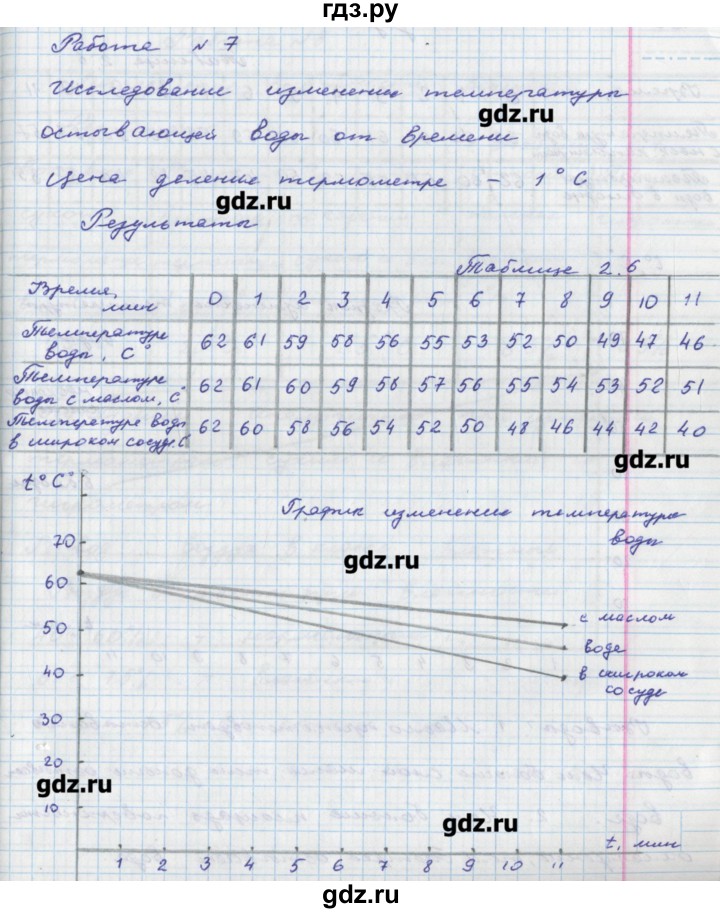 гдз.ру
Работа № 7
Исследование изменения температуры
остывающей воды от времени
gdz.ru
Цена деления термометра – 1°C
gdz.ru
Результаты
Таблица 2.6
Время, мин 0 1 2 3 4 5 6 7 8 9 10 11
Температура воды, C° 62 61 59 58 56 55 53 52 50 49 47 46
Температура воды с маслом, C° 62 61 60 59 58 57 56 55 54 53 52 51
Температура воды в широком сосуде, C° 62 60 58 56 54 52 50 48 46 44 42 40
gdz.ru
t° C°
График изменения температуры
воды
70
gdz.ru
60
с маслом
50
вода
в широком
сосуде
40
30
20
gdz.ru
10
gdz.ru
t, мин
1 2 3 4 5 6 7 8 9 10 11
gdz.ru